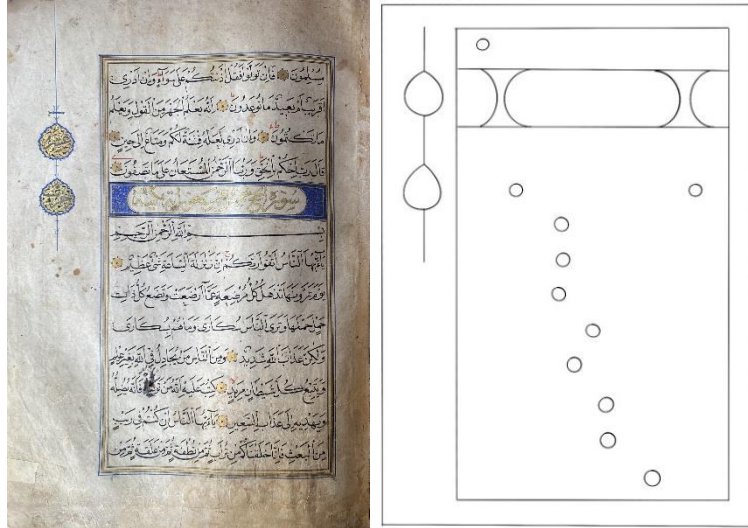 مسلمون فان تولوا فقل آذنتكم على سواء وان ادرى
اقريب ام بعيد ما توعدون انه يعلم الجهر من القول ويعلم
ما تكتمون وان ادرى لعله فتنة لكم ومتاع الى حين
قال رب احكم بالحق وربنا الرحمن المستعان على ما تصفون
سورة
بسم الله الرحمن الرحيم
يا ايها الناس اتقوا ربكم ان زلزلة الساعة شئ عظيم
يوم ترونها تذهل كل مرضعة عما ارضعت وتضع كل ذات
حمل حملها وترى الناس سكارى وما هم بسكارى
ولكن عذاب الله شديد ومن الناس من يجادل فى الله بغير علم
ويتبع كل شيطان مريد كتب عليه انه من تولاه فانه يضله
ويهديه الى عذاب السعير يا ايها الناس ان كنتم فى ريب
من البعث فانا خلقناكم من تراب ثم من نطفة ثم من علقة ثم من